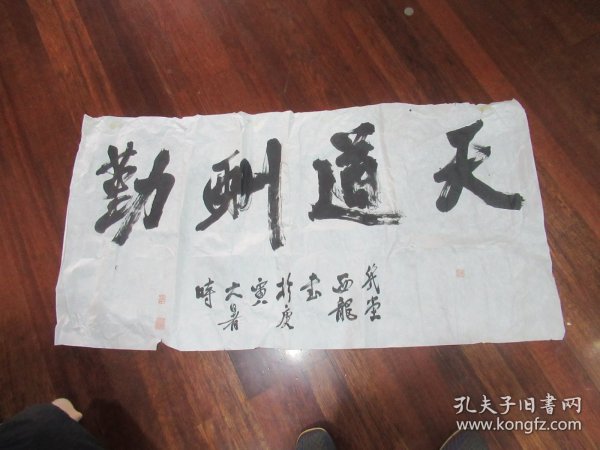 天道酬勤
西龍
書
於庚
寅
大暑
時
孔夫子旧书网
www.kongfz.com